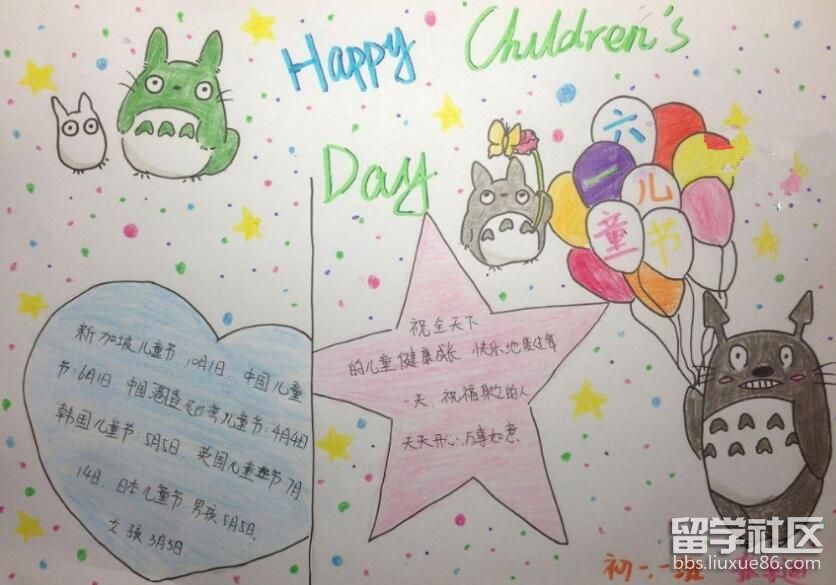 Happy Children's
Day
六
一 儿
童 节
新加坡儿童节 10月1日、中国儿童
节:6月1日、中国
儿童节:4月4日
韩国儿童节:5月5日、英国儿童节7月
14日、日本儿童节:男孩5月5日,
女孩3月3日.
祝全天下
的儿童健康成长 快乐地度过每
一天.祝福
的人
天天开心,万事如意
初一.一班
留学社区
bbs.liuxue86.com